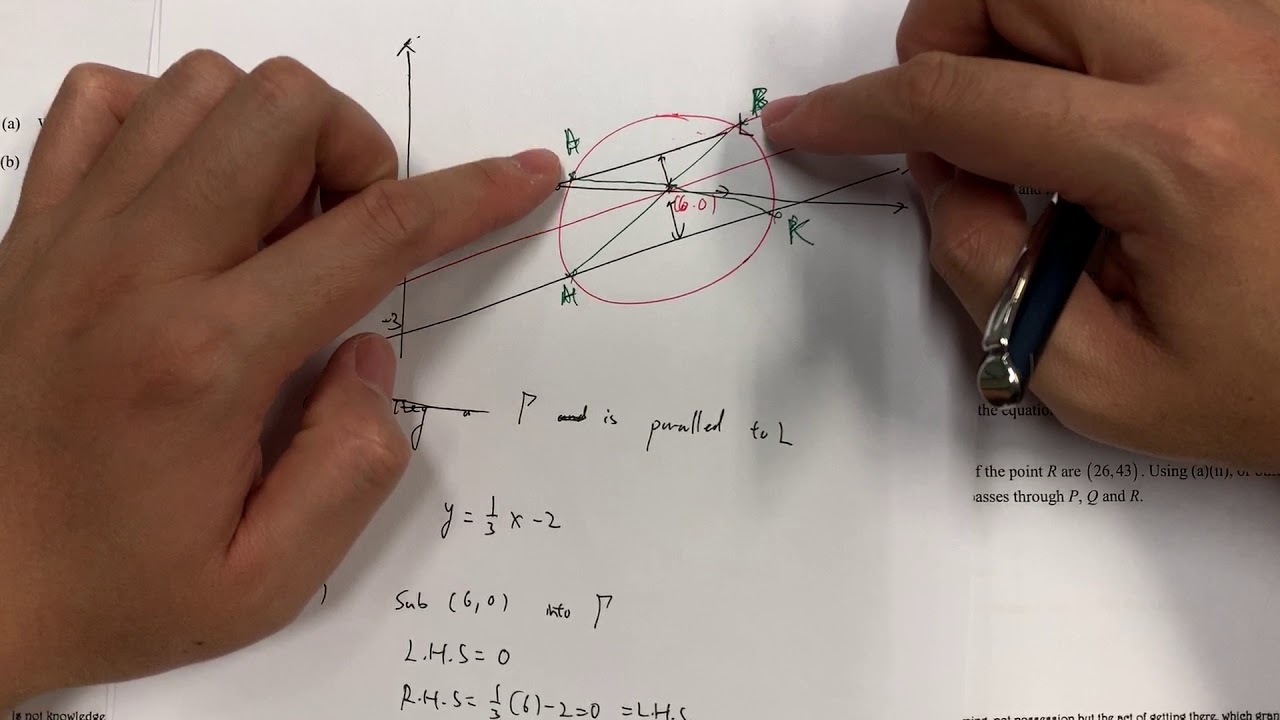 (a)
(b)
A
B
(6,0)
K
H
-3
Γ is parallel to L
y = 1/3 x - 2
Sub (6,0) into Γ
L.H.S = 0
R.H.S = 1/3 (6) - 2 = 0 = L.H.S
and
the equation
f the point R are (26,43). Using (a)(ii),
asses through P, Q and R.
is not knowledge
not possession but the act of getting there, which gran